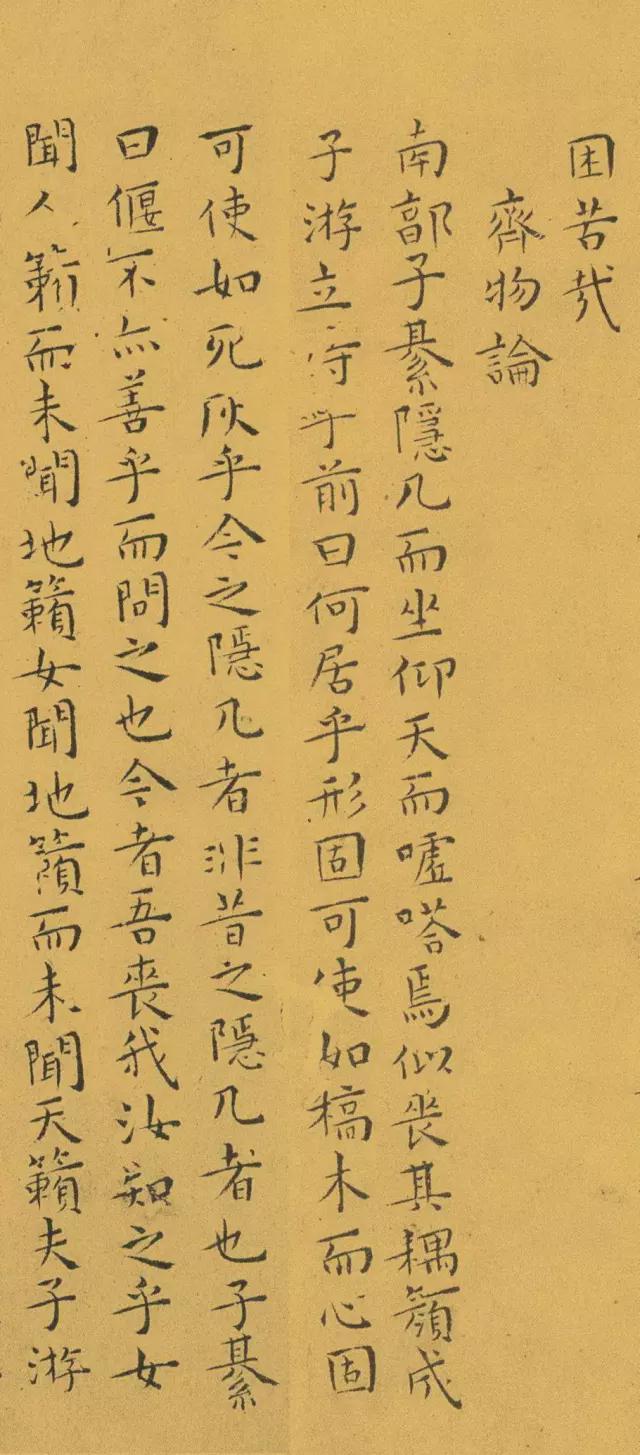 困苦哉
齊物論
南郭子綦隱几而坐仰天而噓嗒焉似喪其耦顏成
子游立侍乎前曰何居乎形固可使如槁木而心固
可使如死灰乎今之隱几者非昔之隱几者也子綦
曰偃不亦善乎而問之也今者吾喪我汝知之乎女
聞人籟而未聞地籟女聞地籟而未聞天籟夫子游